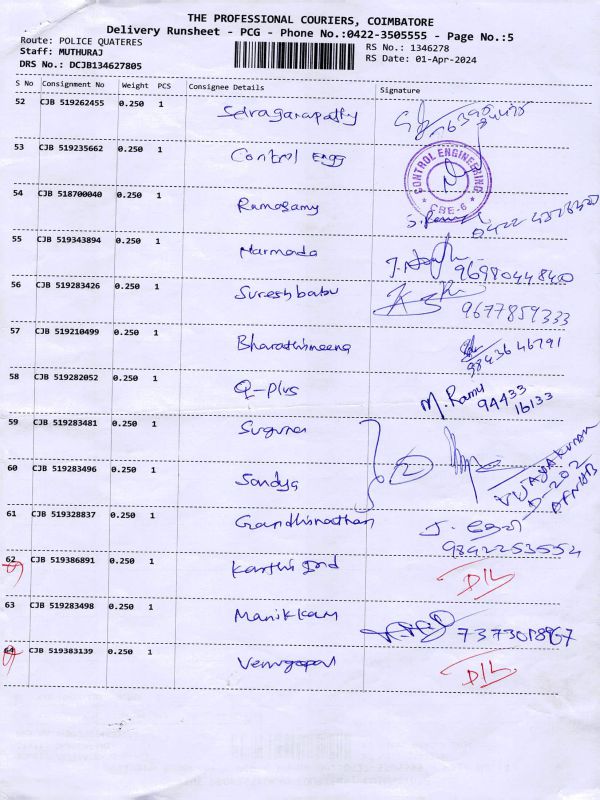 THE PROFESSIONAL COURIERS, COIMBATORE
Delivery Runsheet - PCG - Phone No.:0422-3505555 - Page No.:5
Route: POLICE QUATERES
Staff: MUTHURAJ
DRS No.: DCJB134627805
RS No.: 1346278
RS Date: 01-Apr-2024
S No Consignment No Weight PCS Consignee Details Signature
52 CJB 519262455 0.250 1
53 CJB 519235662 0.250 1 Control Engg
CONTROL ENGINEERING
CBE-6
54 CJB 518700040 0.250 1 Ramasamy
55 CJB 519343894 0.250 1 Narmada
9698044840
56 CJB 519283426 0.250 1 Sureshbabu
9677859333
57 CJB 519210499 0.250 1 Bharathimeena
9843646791
58 CJB 519282052 0.250 1 Q-plus
M. Ramu
94433
16133
59 CJB 519283481 0.250 1 Suguna
60 CJB 519283496 0.250 1 Sandya
2
VIJAYAKUMAR
D-202
61 CJB 519328837 0.250 1 Gandhinathan
9842253552
62 CJB 519386891 0.250 1 Karthi Ind
D/L
63 CJB 519283498 0.250 1 Manikkam
64 CJB 519383139 0.250 1 Venugopal
D/L